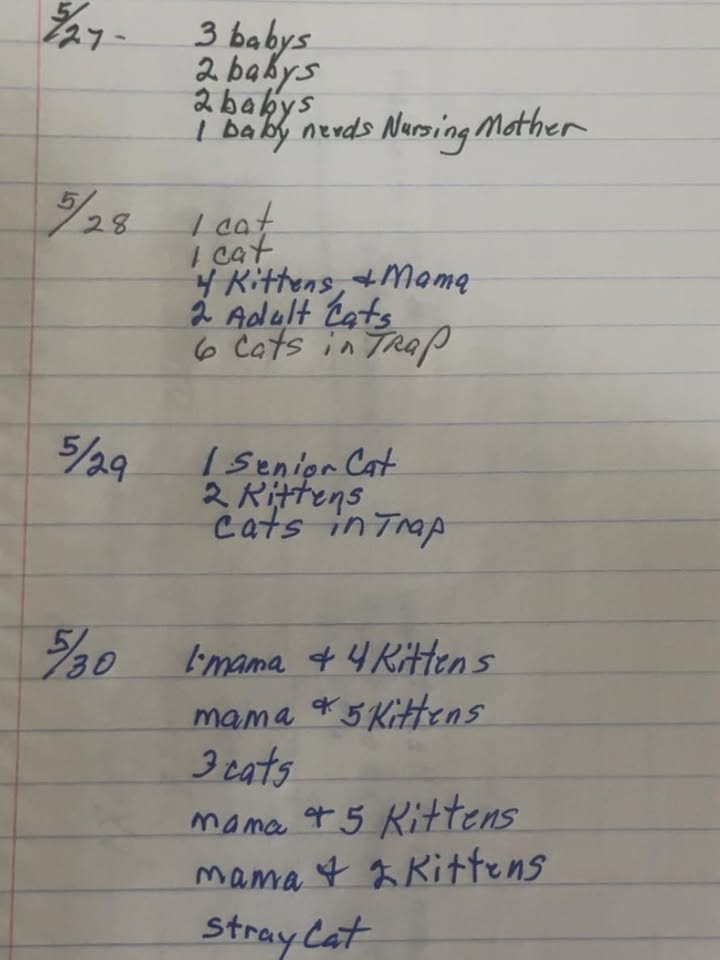 5/27- 3 babys
2 babys
2 babys
1 baby needs Nursing Mother
5/28 1 cat
1 cat
4 Kittens, & Mama
2 Adult Cats
6 Cats in Trap
5/29 1 Senior Cat
2 Kittens
Cats in Trap
5/30 1-mama & 4 Kittens
mama & 5 Kittens
3 cats
mama & 5 Kittens
mama & 2 Kittens
stray Cat